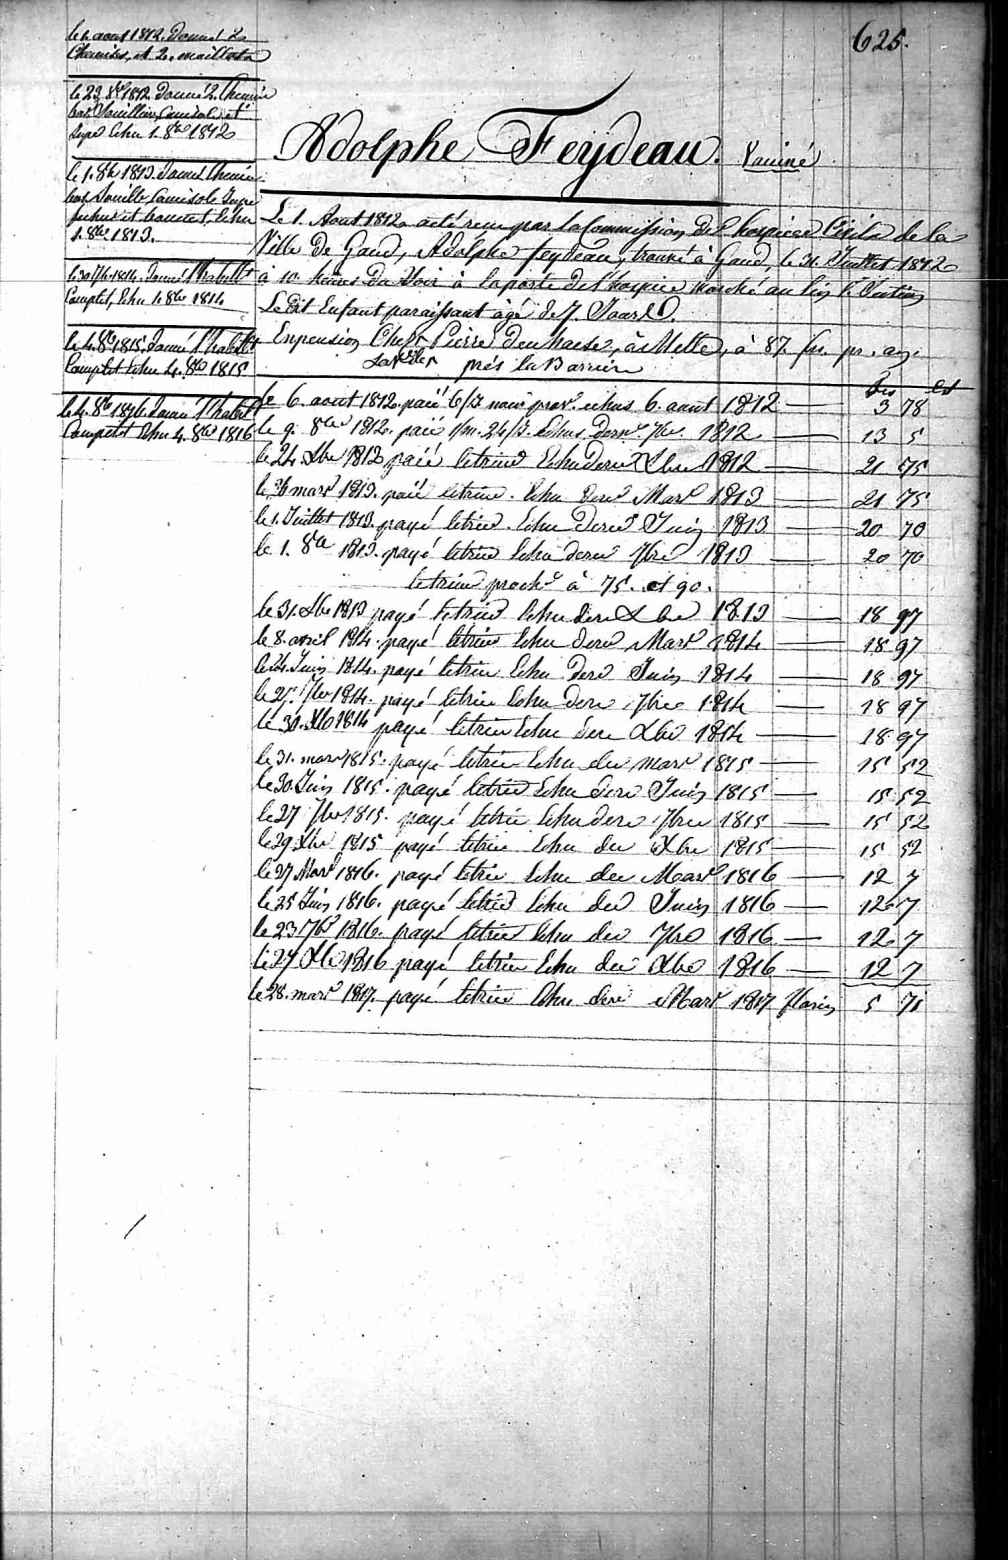 625.
le 1. aout 1812. Donné 2.
Chemises, et 2. maillots
le 23 8bre 1812 donné 2. Chemise
bas, Souillier, Camisole et
Jupe Echu 1. 8bre 1812
le 1. 8bre 1813. Donné Chemise
bas, Souille, Camisole Jupe
fichu et bonnet, Echu
1. 8bre 1813.
le 30 7bre 1814. Donné l'habillt
Complet, Echu 1. 8bre 1814
le 4. 8bre 1815. Donné l'habillt
Complet Echu 4. 8bre 1815
le 4. 8bre 1816 Donné l'habillt
Complet Echu 4. 8bre 1816
Adolphe Feyjdeau. Vaciné
Le 1. Aout 1812 a eté recu par la Commission Des hospices Civils de la
Ville De Gand, Adolphe feyjdeau, trouvé à Gand, le 31. Juillet 1812
à 10 heures Du Soir à la porte de l'hospice Marché au lin
Le Dit Enfant paraissant agé de 7. Jours.
En pension Chez Pierre à Melle, à 87. fr. pr. an.
près la Barriere
frs Cs
le 6. aout 1812. paié 6/S echus 6. aout 1812 — 3 78
le 9. 8bre 1812. paié 24/S. Echus dernr. 7bre. 1812 — 13 5
le 24. Xbre 1812 paié letrim Echu dernr Xbre 1812 — 21 75
le 26 mars 1813. paié letrim. Echu dernr Mars 1813 — 21 75
le 1. Juillet 1813. payé letrim. Echu dernr Juin 1813 — 20 70
le 1. 8bre 1813. payé letrim Echu dernr 7bre 1813 — 20 70
letrim proche à 75. et 90.
le 31. Xbre 1813 payé letrim Echu dere Xbre 1813 — 18 97
le 8. avril 1814. payé letrim Echu dere Mars 1814 — 18 97
le 24. Juin 1814. payé letrim Echu dere Juin 1814 — 18 97
le 25. 7bre 1814. payé letrim Echu dere 7bre 1814 — 18 97
le 30. Xbre 1814 payé letrim Echu dere Xbre 1814 — 18 97
le 31. mars 1815. payé letrim Echu der mars 1815 — 15 52
le 30 Juin 1815. payé letrim Echu dere Juin 1815 — 15 52
le 27 7bre 1815. payé letrim Echu dere 7bre 1815 — 15 52
le 29 Xbre 1815 payé letrim Echu der Xbre 1815 — 15 52
le 27 Mars 1816. payé letrim Echu der Mars 1816 — 12 7
le 25 Juin 1816. payé letrim Echu der Juin 1816 — 12 7
le 23 7bre 1816. payé letrim Echu der 7bre 1816 — 12 7
le 27 Xbre 1816 payé letrim Echu der Xbre 1816 — 12 7
le 28. mars 1817. payé letrim Echu dere Mars 1817 florins 5 71